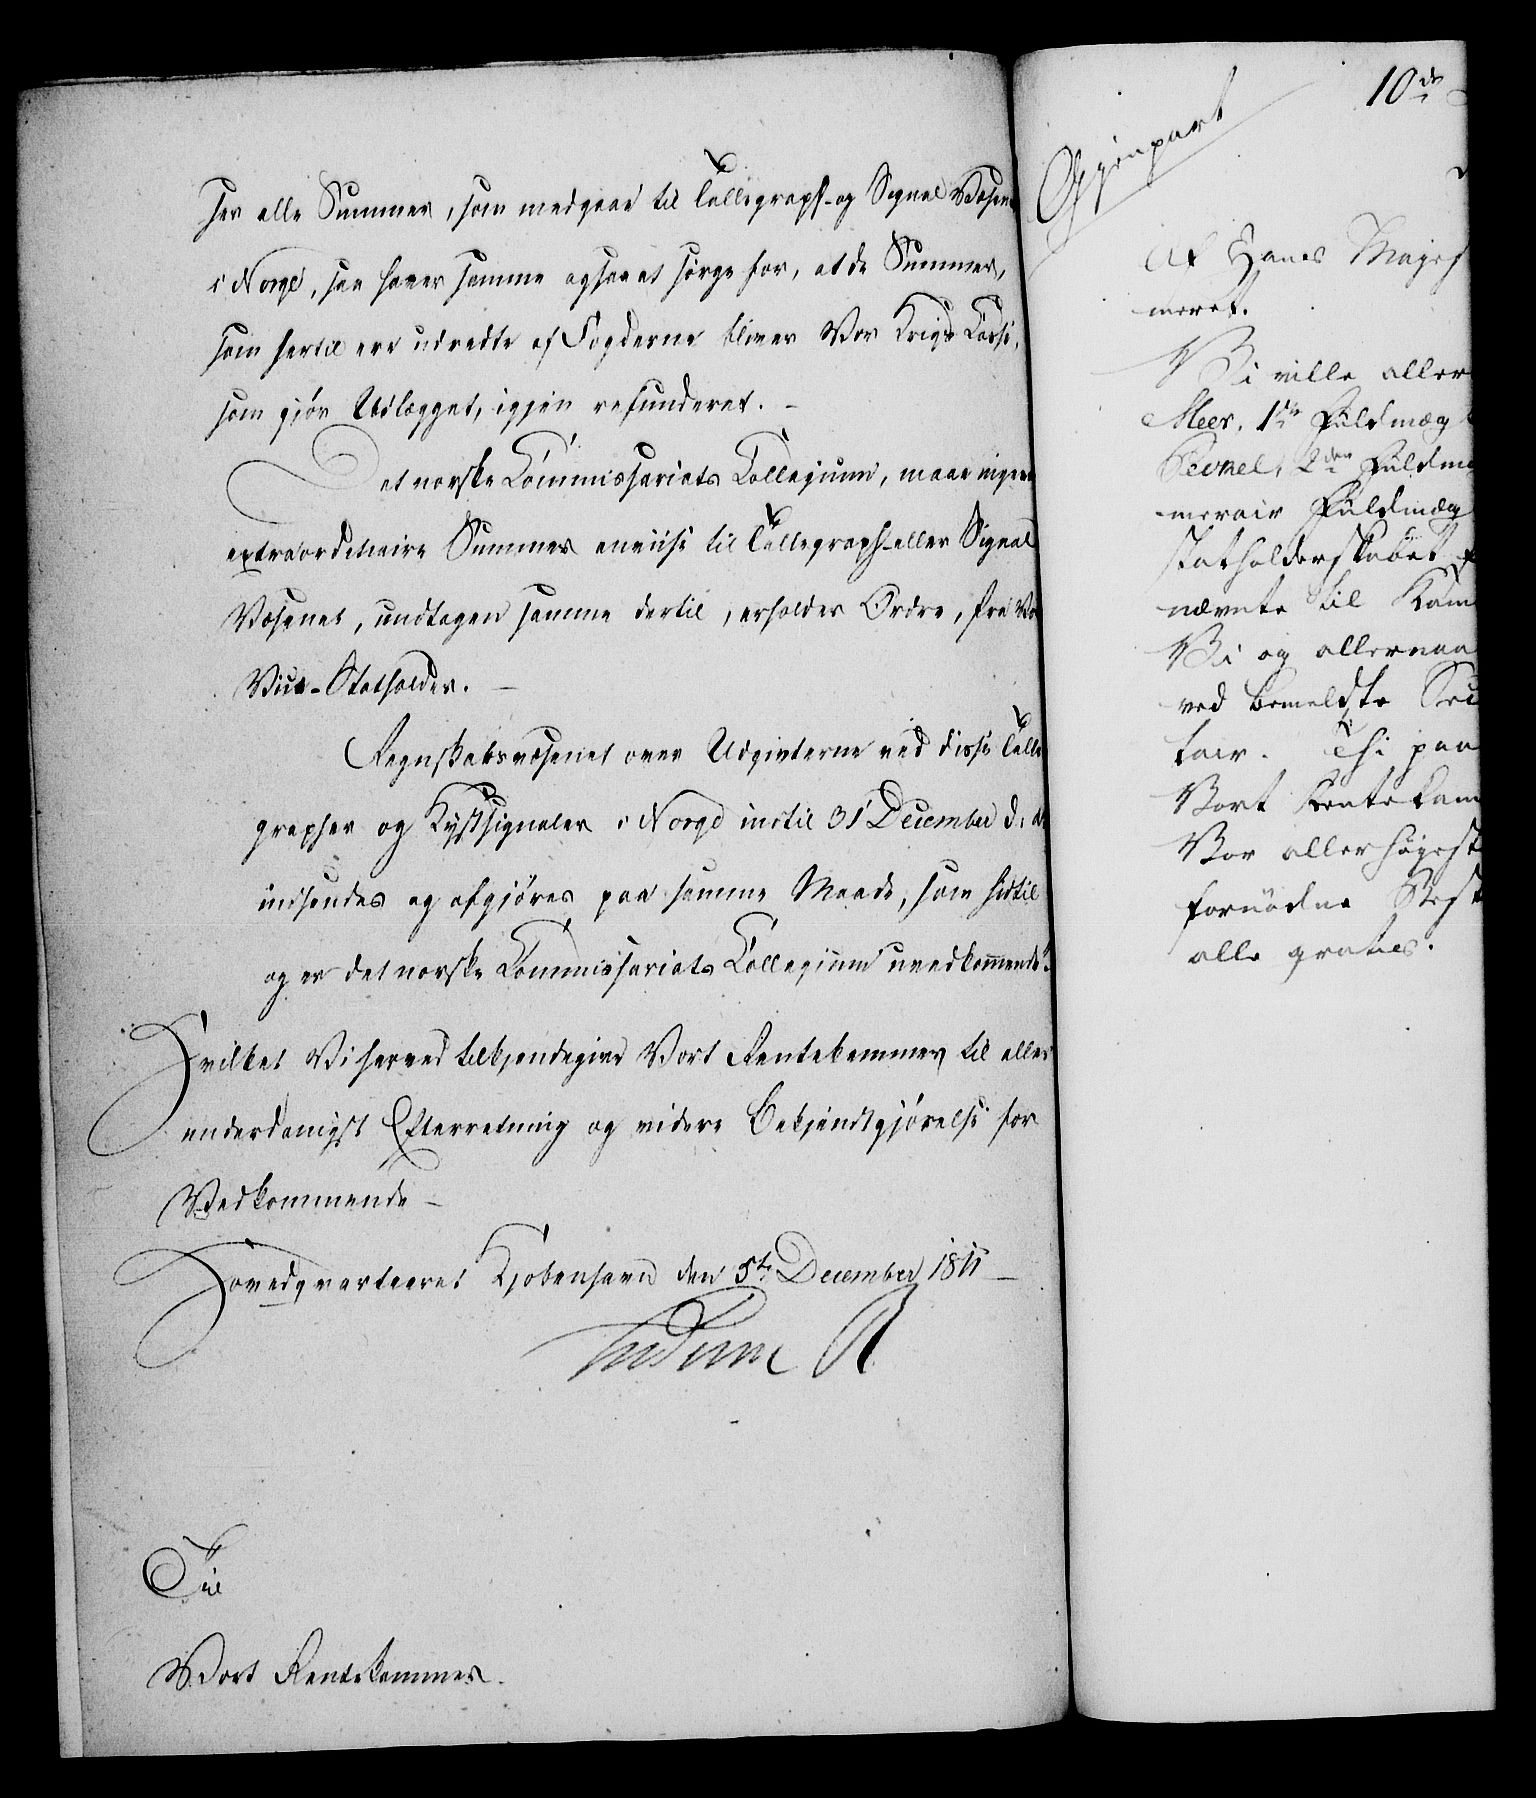 her alle Summer, som medgaae til Tellegraph- og Signal Væsenet
i Norge, saa haver samme ogsaa at sørge for, at de Summer,
som hertil ere udredte af Fogderne bliver Vor Krigs Casse,
som gjør Udlægget, igjen refunderet. –
Det norske Commissariats Collegium, maae ingen
extraordinaire Summer anviise til Tellegraph- eller Signal
Væsenet, undtagen samme dertil, erholder Ordre, fra Vor
Vice-Statholder. –
Regnskabsvæsenet over Udgivterne ved disse Telle-
grapher og Kystsignaler i Norge indtil 31 December d. A.
indsendes og afgjøres paa samme Maade, som hidtil
og er det norske Commissariats Collegium uvedkommende.
Hvilket Vi herved tilkjendegive Vort Rentekammer til aller-
underdanigst Efterretning og videre Bekjendtgjørelse for
Vedkommende –
Hovedqvarteeret Kjøbenhavn den 5te December 1811 –
Frederik R
Til
Vort Rentekammer.
10de
Gjenpart
Af Hans Majes
meret.
Vi ville aller
Meer, 1ste Fuldmæg
2den Fuldmæ
merair Fuldmæg
Statholderskabet
nævnte til Kam
Vi og allernaa
ved bemeldte Sec
tair. Thi paa
Vort Rentekam
Vor allerhøiest
fornødne Best
alle gratis.